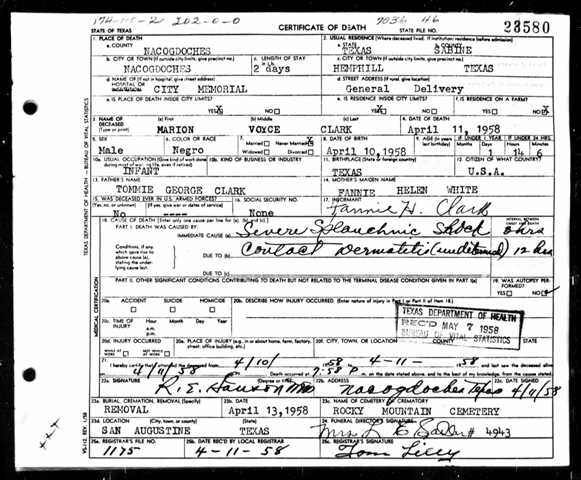 174-115-2 I02-0-0 7036 46
STATE OF TEXAS
CERTIFICATE OF DEATH
23580
1. PLACE OF DEATH
a. COUNTY
NACOGDOCHES
2. USUAL RESIDENCE (Where deceased lived. If institution: residence before admission)
a. STATE
TEXAS
b. COUNTY
SABINE
b. CITY OR TOWN (If outside city limits, give precinct no.)
NACOGDOCHES
c. LENGTH OF STAY
2 days
c. CITY OR TOWN (If outside city limits, give precinct no.)
HEMPHILL TEXAS
d. NAME OF (If not in hospital, give street address)
HOSPITAL OR
INSTITUTION
CITY MEMORIAL
d. STREET ADDRESS (If rural, give location)
General Delivery
e. IS PLACE OF DEATH INSIDE CITY LIMITS?
YES NO
e. IS RESIDENCE INSIDE CITY LIMITS?
YES NO
f. IS RESIDENCE ON A FARM?
YES NO
3. NAME OF DECEASED
(Type or print)
(a) First
MARION
(b) Middle
VOYCE
(c) Last
CLARK
4. DATE OF DEATH
April 11, 1958
5. SEX
Male
6. COLOR OR RACE
Negro
7. Married Never Married
Widowed Divorced
8. DATE OF BIRTH
April 10, 1958
9. AGE (In years last birthday)
IF UNDER 1 YEAR
Months Days
1
IF UNDER 24 HRS.
Hours Min.
14 6
10a. USUAL OCCUPATION (Give kind of work done
INFANT
10b. KIND OF BUSINESS OR INDUSTRY
11. BIRTHPLACE (State or foreign country)
TEXAS
12. CITIZEN OF WHAT COUNTRY?
U.S.A.
13. FATHER'S NAME
TOMMIE GEORGE CLARK
14. MOTHER'S MAIDEN NAME
FANNIE HELEN WHITE
15. WAS DECEASED EVER IN U.S. ARMED FORCES?
(Yes, no, or unknown) (If yes, give war or dates of service)
No ----
16. SOCIAL SECURITY NO.
None
17. INFORMANT
Fannie H. Clark
18. CAUSE OF DEATH (Enter only one cause per line for (a), (b), and (c).)
PART I. DEATH WAS CAUSED BY:
IMMEDIATE CAUSE (a)
Severe Splanchnic Shock
hrs
INTERVAL BETWEEN
ONSET AND DEATH
Conditions, if any, which gave rise to above cause (a), stating the underlying cause last.
DUE TO (b)
Contact Dermatitis
12 hrs
DUE TO (c)
PART II. OTHER SIGNIFICANT CONDITIONS CONTRIBUTING TO DEATH BUT NOT RELATED TO THE TERMINAL DISEASE CONDITION GIVEN IN PART I(a)
19. WAS AUTOPSY PERFORMED?
YES NO
20a. ACCIDENT SUICIDE HOMICIDE
20b. DESCRIBE HOW INJURY OCCURRED. (Enter nature of injury in Part I or Part II of item 18.)
20c. TIME OF INJURY
Hour Month Day Year
a.m.
p.m.
TEXAS DEPARTMENT OF HEALTH
REC'D MAY 7 1958
BUREAU OF VITAL STATISTICS
20d. INJURY OCCURRED
WHILE AT WORK NOT WHILE AT WORK
20e. PLACE OF INJURY (e.g., in or about home, farm, factory, street, office building, etc.)
20f. CITY, TOWN, OR LOCATION COUNTY STATE
21. I hereby certify that I attended the deceased from 4/10/ 1958 to 4-11- 1958 and last saw the deceased alive
4/11/58 Death occurred at 7:58 P m. on the date stated above, and to the best of my knowledge, from the causes stated.
22a. SIGNATURE (Degree or title)
MD
22b. ADDRESS
Nacogdoches Texas
22c. DATE SIGNED
4/11/58
23a. BURIAL, CREMATION, REMOVAL (Specify)
REMOVAL
23b. DATE
April 13, 1958
23c. NAME OF CEMETERY OR CREMATORY
ROCKY MOUNTAIN CEMETERY
23d. LOCATION (City, town, or county) (State)
SAN AUGUSTINE TEXAS
24. FUNERAL DIRECTOR'S SIGNATURE
# 4943
25a. REGISTRAR'S FILE NO.
1175
25b. DATE REC'D BY LOCAL REGISTRAR
4-11-58
25c. REGISTRAR'S SIGNATURE
Tom Lilly
TEXAS DEPARTMENT OF HEALTH — BUREAU OF VITAL STATISTICS
MEDICAL CERTIFICATION